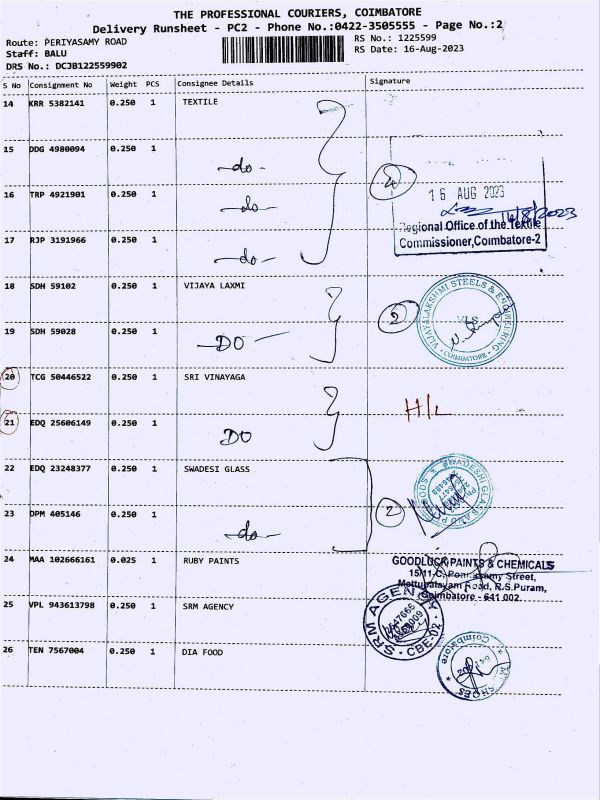 THE PROFESSIONAL COURIERS, COIMBATORE
Delivery Runsheet - PC2 - Phone No.:0422-3505555 - Page No.:2
Route: PERIYASAMY ROAD RS No.: 1225599
Staff: BALU RS Date: 16-Aug-2023
DRS No.: DCJB122559902
S No Consignment No Weight PCS Consignee Details Signature
14 KRR 5382141 0.250 1 TEXTILE
15 DDG 4980094 0.250 1 -do-
16 TRP 4921901 0.250 1 -do-
17 RJP 3191966 0.250 1 -do-
4
16 AUG 2023
16/8/2023
Regional Office of the Textile
Commissioner, Coimbatore-2
18 SDH 59102 0.250 1 VIJAYA LAXMI
19 SDH 59028 0.250 1 -DO-
2
VIJAYALAKSHMI STEELS & ENGINEERING
VLS
COIMBATORE
20 TCG 50446522 0.250 1 SRI VINAYAGA
21 EDQ 25606149 0.250 1 DO
H/L
22 EDQ 23248377 0.250 1 SWADESI GLASS
23 DPM 405146 0.250 1 -do-
2
24 MAA 102666161 0.025 1 RUBY PAINTS
GOODLUCK PAINTS & CHEMICALS
15/11-C, Ponnusamy Street,
Mettupalayam Road, R.S.Puram,
Coimbatore - 641 002.
25 VPL 943613798 0.250 1 SRM AGENCY
SRM AGENCY
CBE-02
26 TEN 7567004 0.250 1 DIA FOOD
Coimbatore
SHOES